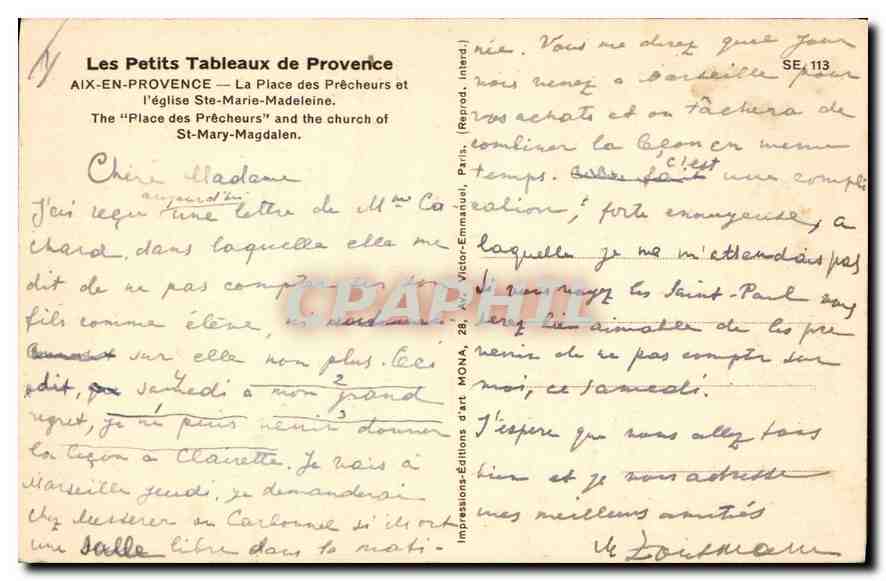 Les Petits Tableaux de Provence
AIX-EN-PROVENCE — La Place des Prêcheurs et
l'église Ste-Marie-Madeleine.
The "Place des Prêcheurs" and the church of
St-Mary-Magdalen.
Chère Madame
aujourd'hui
J'ai reçu une lettre de Mme Ca-
chard, dans laquelle elle me
dit de ne pas compter sur son
fils comme élève,
sur elle non plus. Ceci
dit, samedi à mon 2 grand
regret, je ne puis venir 3 donner
la leçon à Clairette. Je vais à
Marseille jeudi, je demanderai
chez Messerer ou Carbonnel s'ils ont
une salle libre dans la mati-
Impressions-Éditions d'art MONA, 28, Av. Victor-Emmanuel, Paris. (Reprod. interd.)
SE. 113
née. Vous me direz quel jour
vous venez à Marseille pour
vos achats et on tâchera de
combiner la leçon en même
temps. c'est une compli
cation, forte ennuyeuse, à
laquelle je ne m'attendais pas
Si vous voyez les Saint-Paul vous
serez bien aimable de les pré
venir de ne pas compter sur
moi, ce samedi.
J'espère que vous allez tous
bien et je vous adresse
mes meilleurs amitiés
CPAPHIL